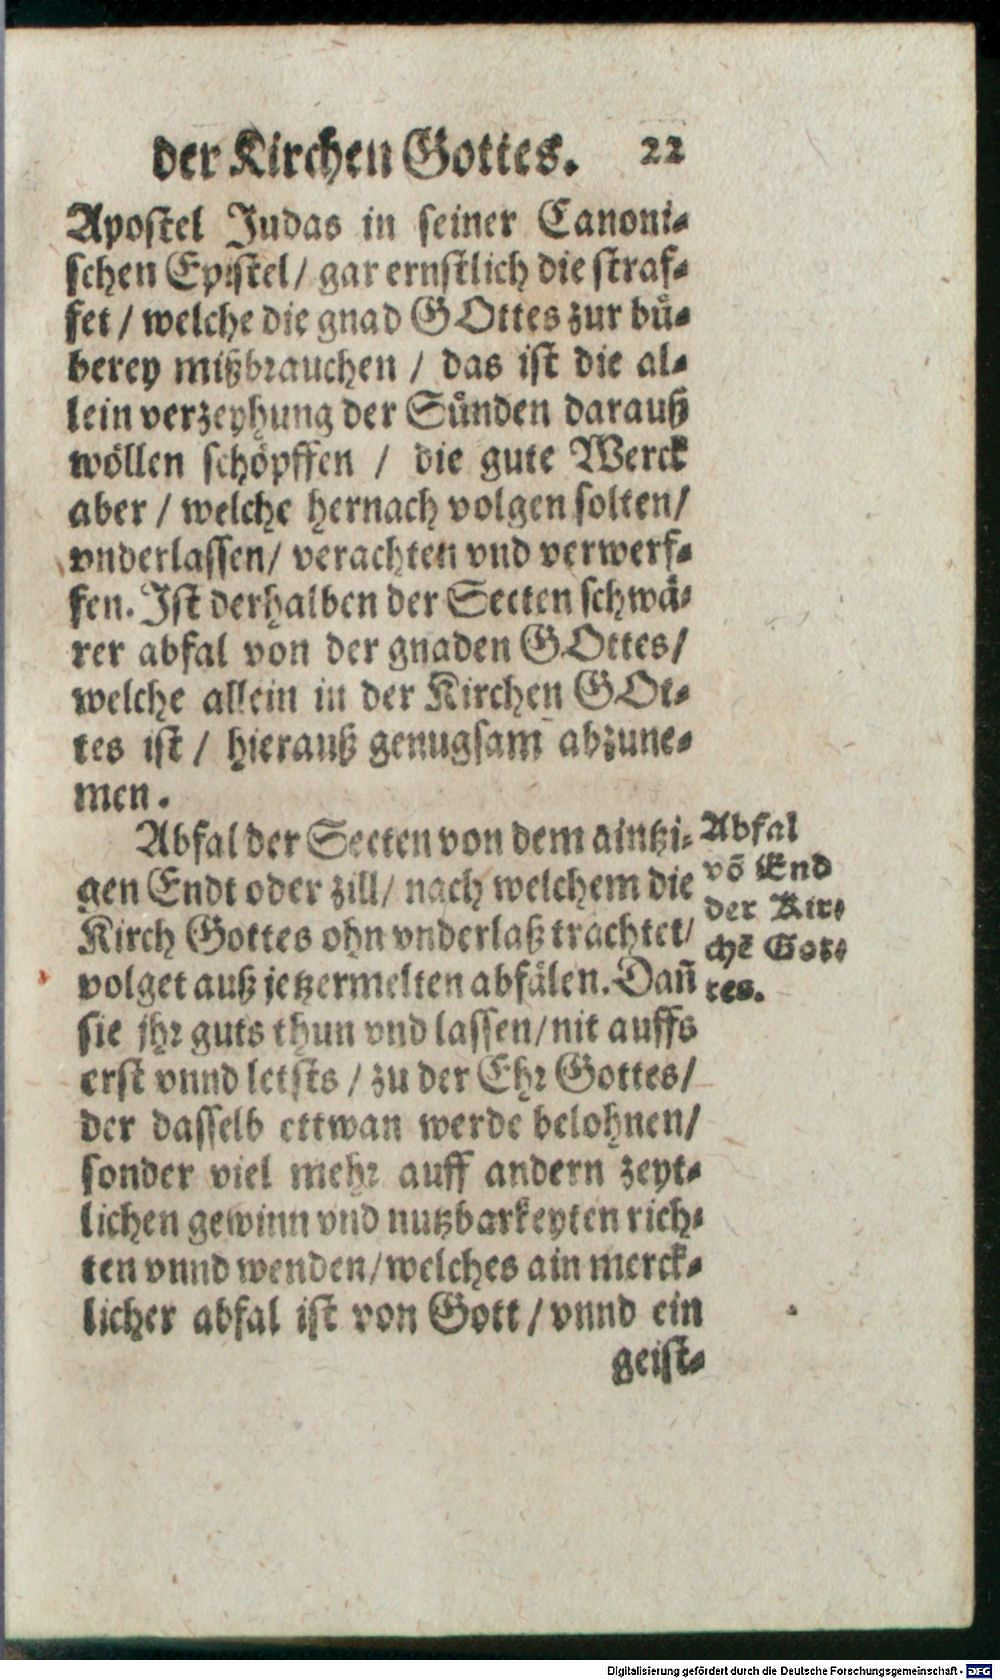 der Kirchen Gottes. 22
Apostel Judas in seiner Canoni-
schen Epistel/ gar ernstlich die straf-
fet / welche die gnad GOttes zur bů-
berey mißbrauchen / das ist die al-
lein verzeyhung der Sůnden darauß
wöllen schöpffen / die gute Werck
aber / welche hernach volgen solten/
vnderlassen/ verachten vnd verwerf-
fen. Ist derhalben der Secten schwä-
rer abfal von der gnaden GOttes/
welche allein in der Kirchen GOt-
tes ist / hierauß genugsam abzune-
men.
Abfal der Secten von dem aintzi-
gen Endt oder zill/ nach welchem die
Kirch Gottes ohn vnderlaß trachtet/
volget auß jetzermelten abfälen. Dañ
sie jhr guts thun vnd lassen/nit auffs
erst vnnd letsts / zu der Ehr Gottes/
der dasselb ettwan werde belohnen/
sonder viel mehr auff andern zeyt-
lichen gewinn vnd nutzbarkeyten rich-
ten vnnd wenden/welches ain merck-
licher abfal ist von Gott / vnnd ein
geist-
Abfal
võ End
der Kir-
chẽ Got-
tes.
Digitalisierung gefördert durch die Deutsche Forschungsgemeinschaft - DFG